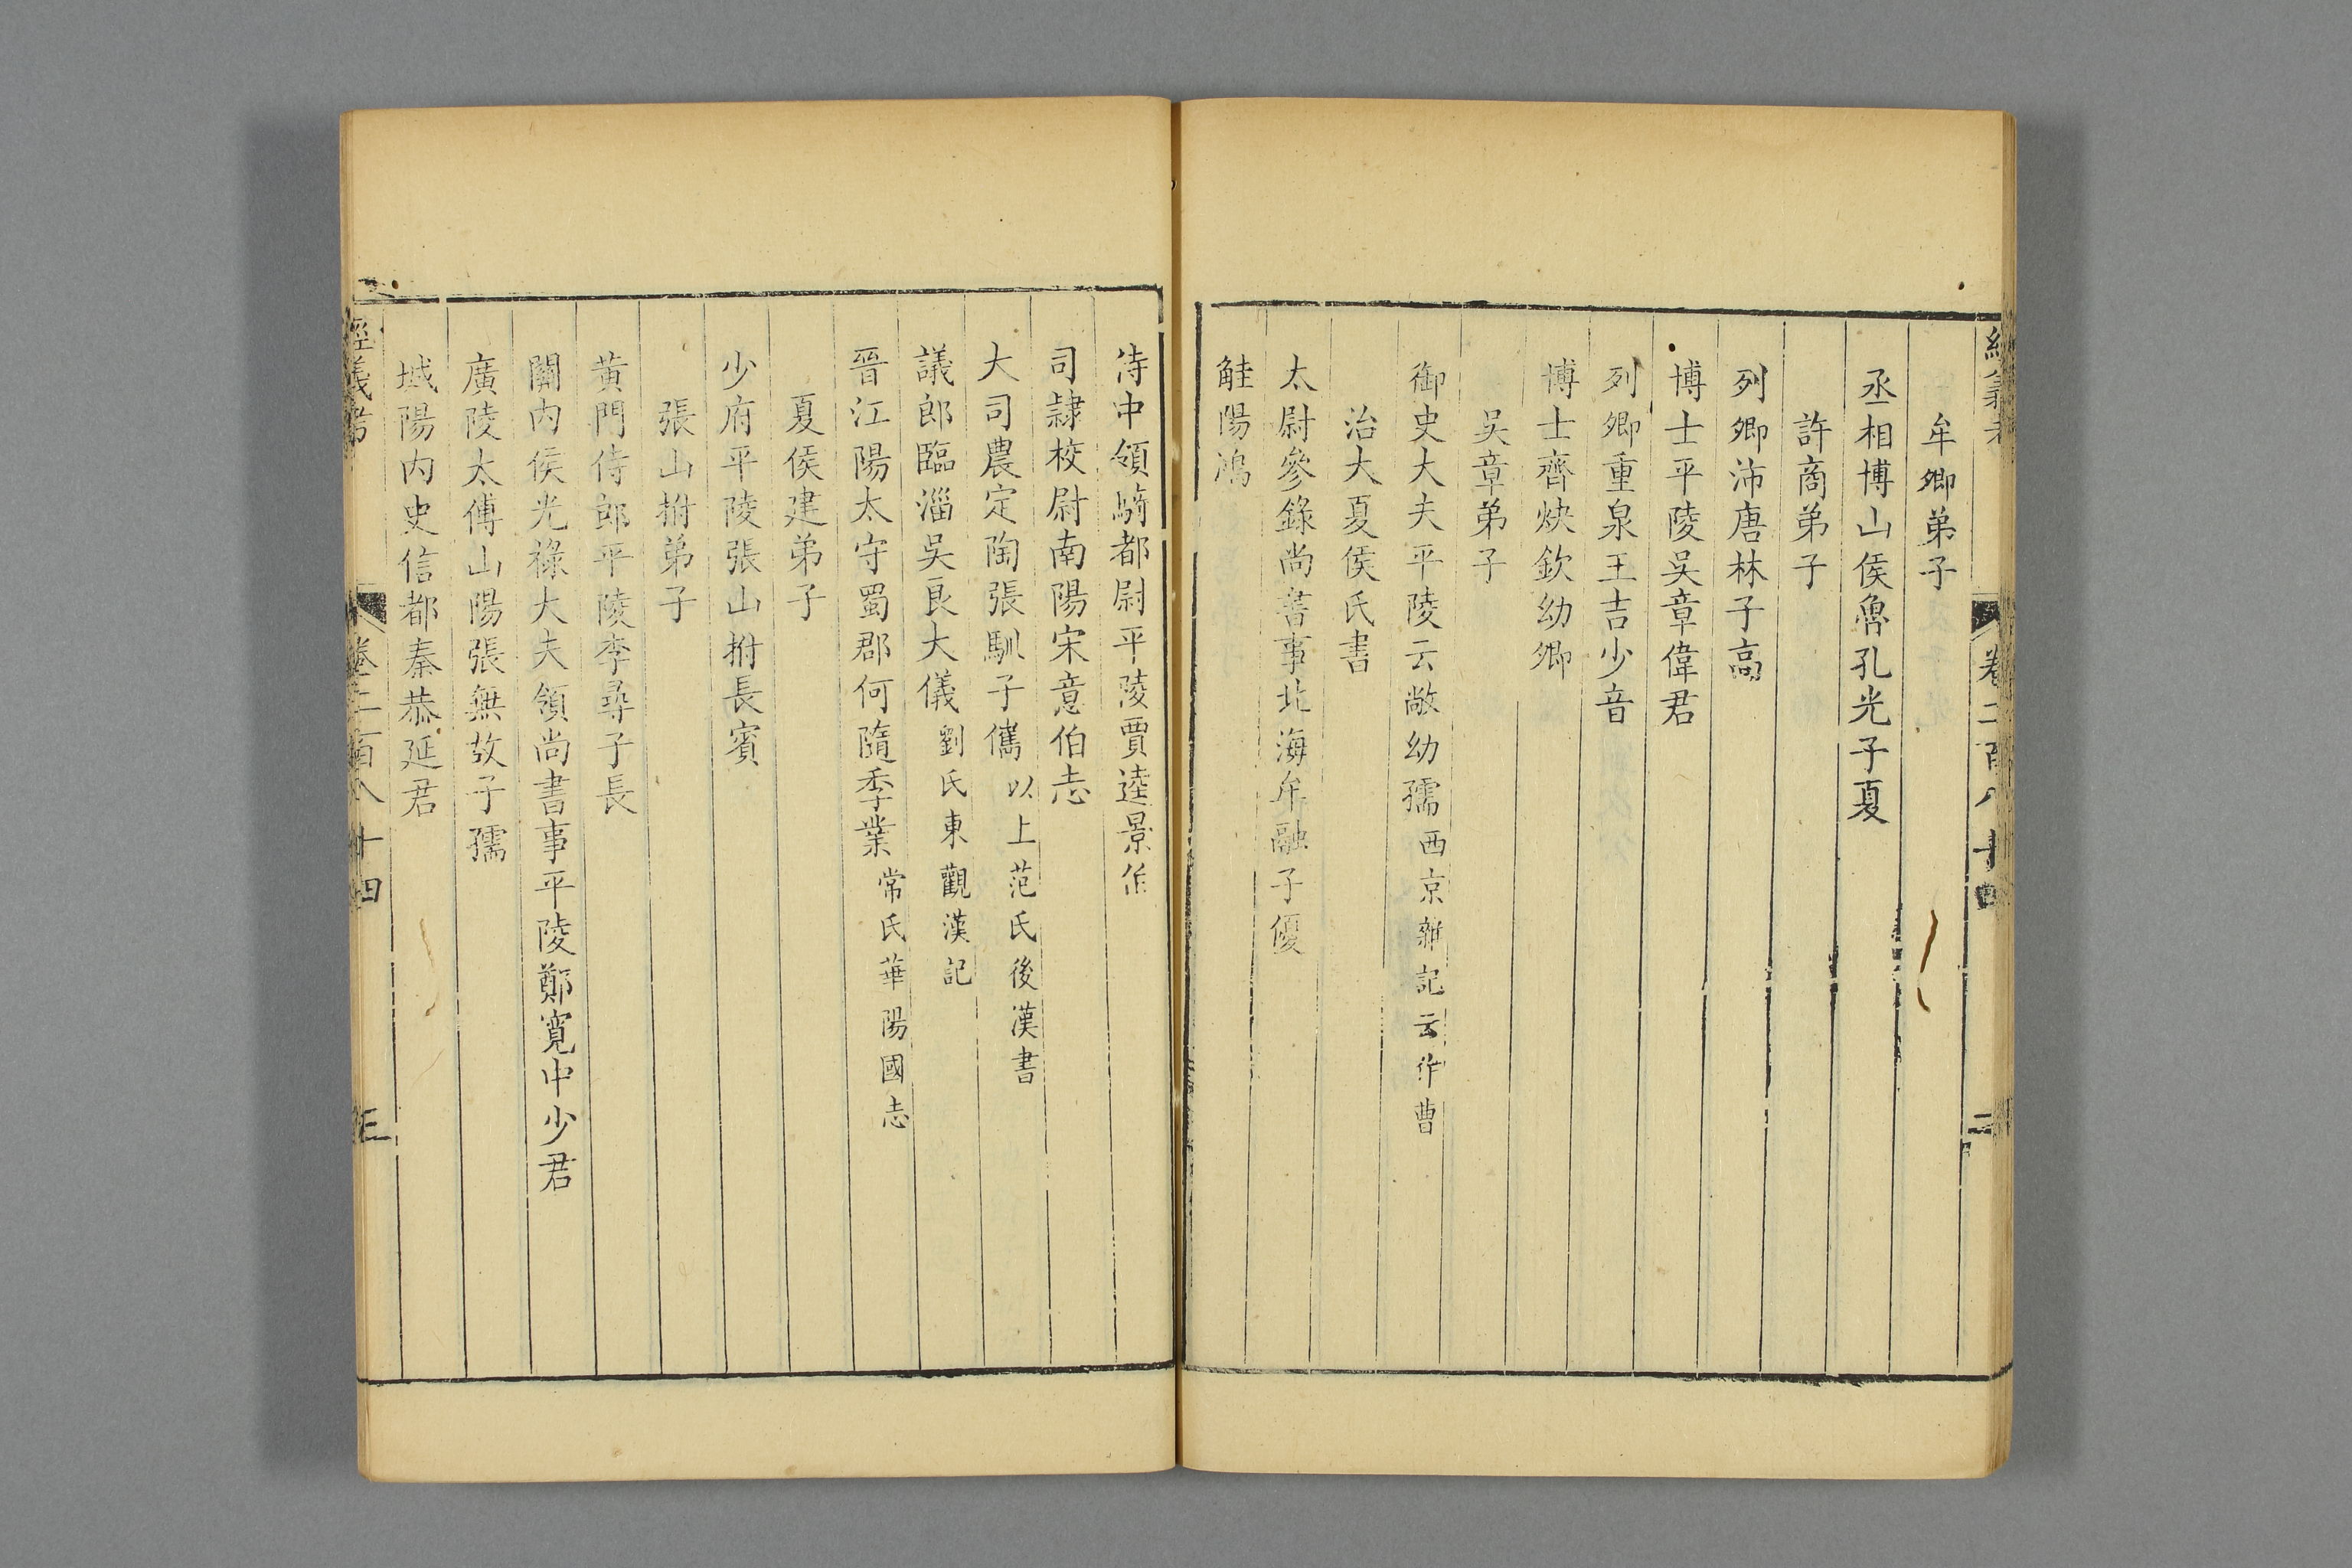 經義考
卷二百八十四
二
牟卿弟子
丞相博山侯魯孔光子夏
許商弟子
列卿沛唐林子高
博士平陵吳章偉君
列卿重泉王吉少音
博士齊炔欽幼卿
吳章弟子
御史大夫平陵云敞幼孺西京雜記云作曹
治大夏侯氏書
太尉參錄尚書事北海牟融子優
鮭陽鴻
侍中領騎都尉平陵賈逵景伯
司隸校尉南陽宋意伯志
大司農定陶張馴子儁以上范氏後漢書
議郎臨淄吳良大儀劉氏東觀漢記
晉江陽太守蜀郡何隨季業常氏華陽國志
夏侯建弟子
少府平陵張山拊長賓
張山拊弟子
黃門侍郎平陵李尋子長
關內侯光祿大夫領尚書事平陵鄭寬中少君
廣陵太傅山陽張無故子孺
城陽內史信都秦恭延君
經義考
卷二百八十四
三